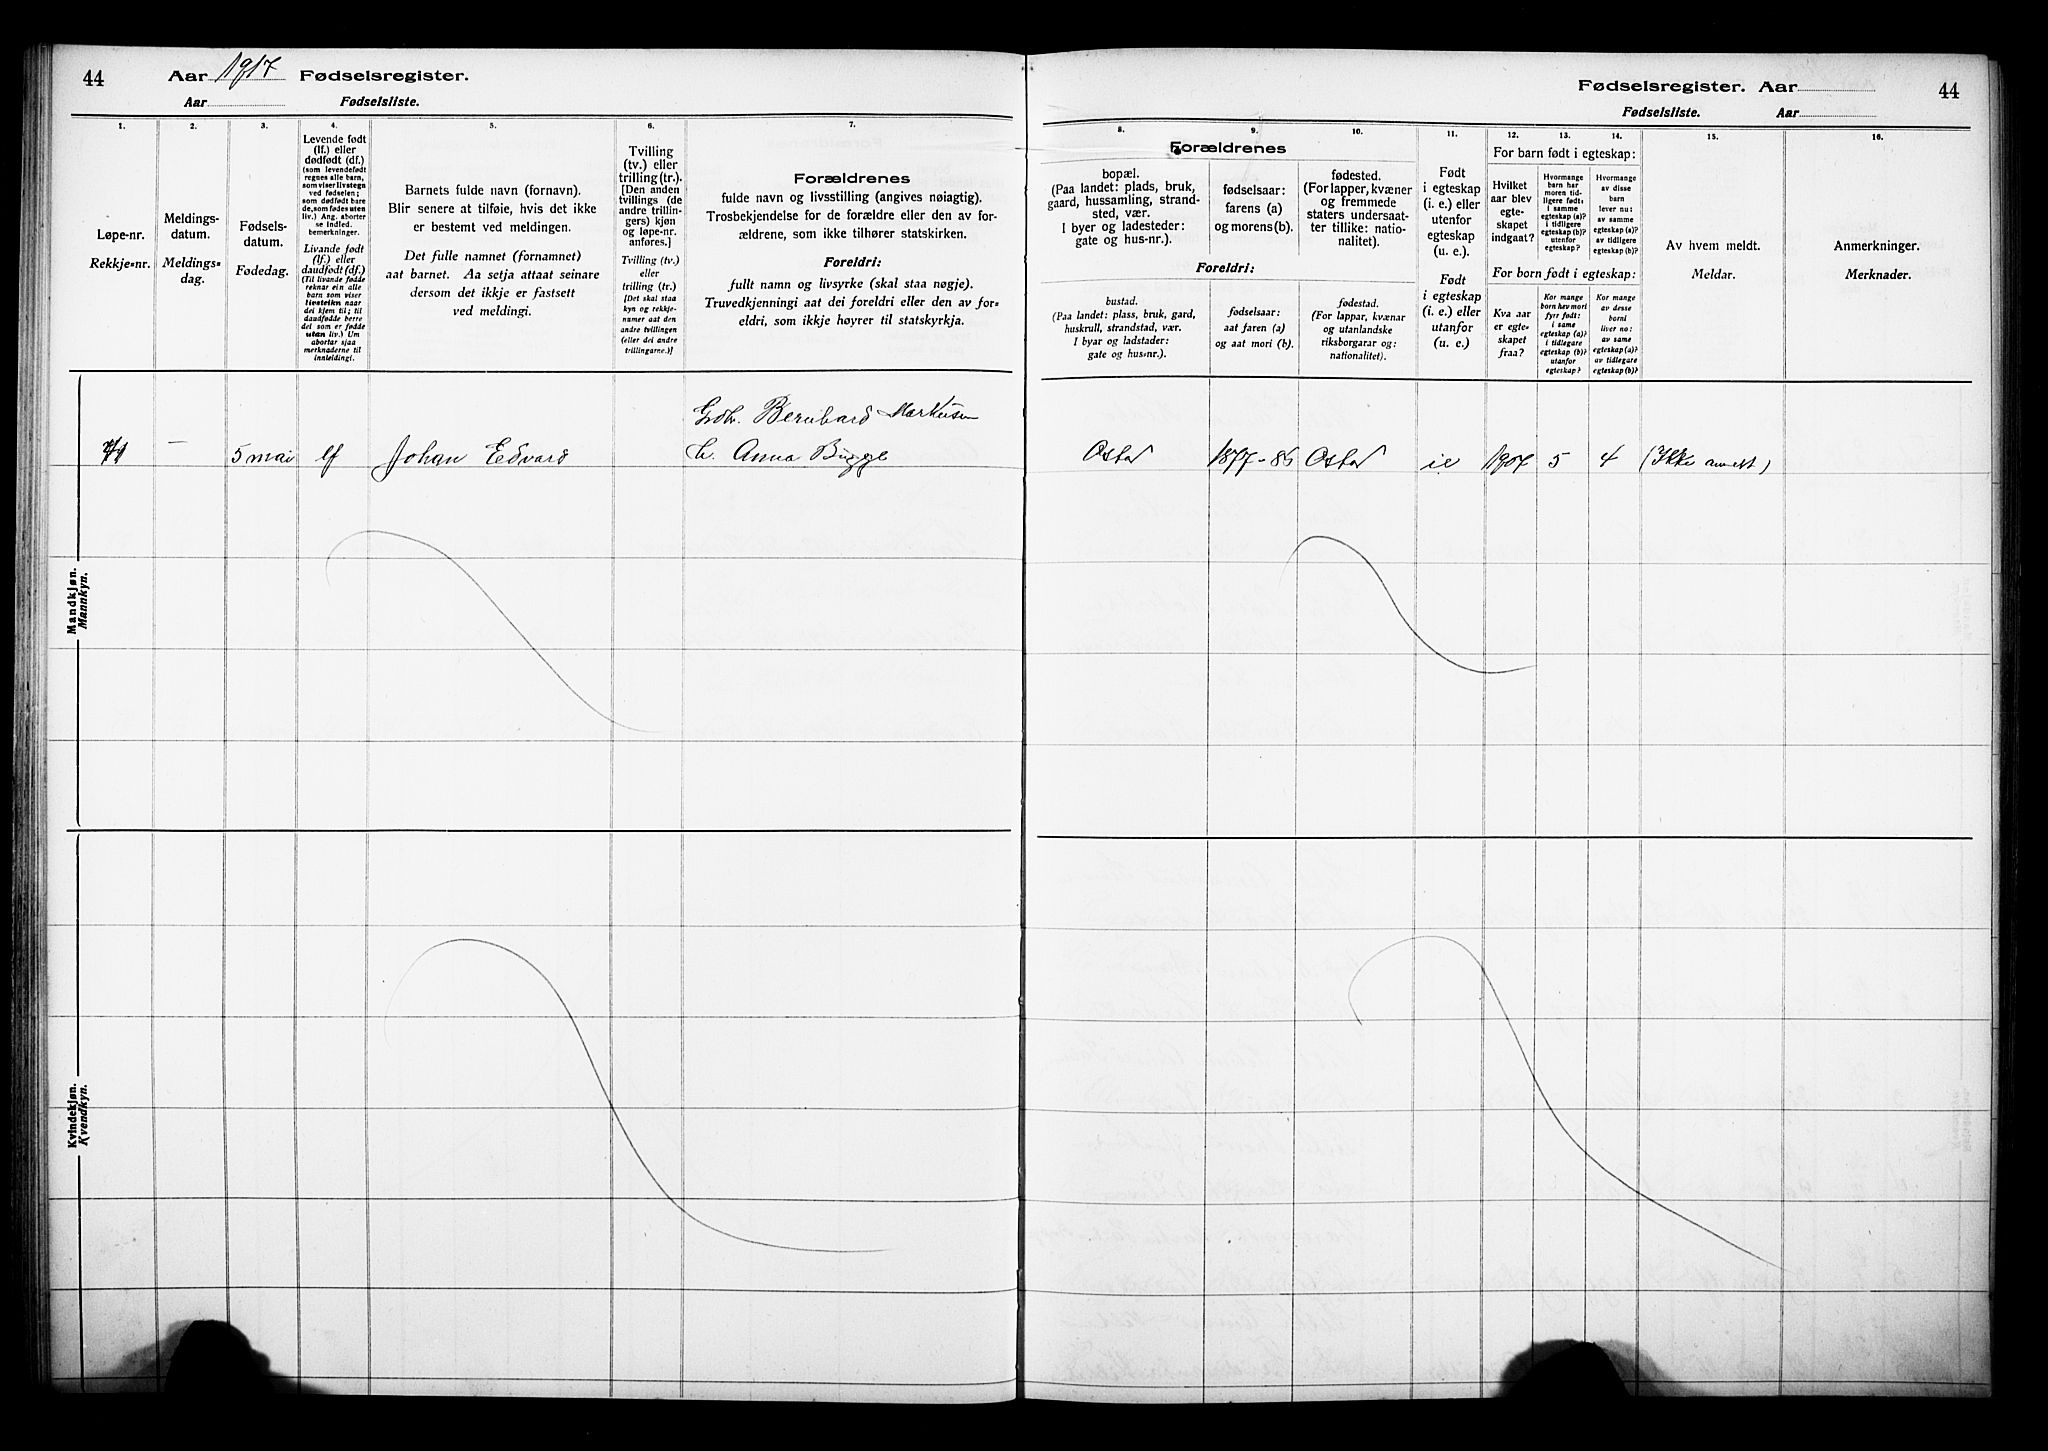 44
Aar 1917 Fødselsregister.
Aar Fødselsliste.
1.
Løpe-nr.
Rekkje=nr.
2.
Meldings-
datum.
Meldings=
dag.
3.
Fødsels-
datum.
Fødedag.
4.
Levende født
(lf.) eller
dødfødt (df.)
(som levendefødt
regnes alle barn,
som viser livstegn
ved fødselen;
som dødfødt bare
de, som fødes uten
liv.) Ang. aborter
se indled.
bemerkninger.
Livande født
(lf.) eller
daudfødt (df.)
(Til livande fødde
reknar ein alle
barn som viser
livsteikn naar
dei kjem til; til
daudfødde berre
dei som er fødde
utan liv.) Um
abortar sjaa
merknaderne til
innleidingi.
5.
Barnets fulde navn (fornavn).
Blir senere at tilføie, hvis det ikke
er bestemt ved meldingen.
Det fulle namnet (fornamnet)
aat barnet. Aa setja attaat seinare
dersom det ikkje er fastsett
ved meldingi.
6.
Tvilling
(tv.) eller
trilling (tr.).
[Den anden
tvillings (de
andre trillin-
gers) kjøn
og løpe-nr.
anføres.]
Tvilling (tv.)
eller
trilling (tr.)
[Det skal staa
kyn og rekkje-
numer aat den
andre tvillingen
(eller dei andre
trillingarne.)]
7.
Forældrenes
fulde navn og livsstilling (angives nøiagtig).
Trosbekjendelse for de forældre eller den av for-
ældrene, som ikke tilhører statskirken.
Foreldri:
fullt namn og livsyrke (skal staa nøgje).
Truvedkjenningi aat dei foreldri eller den av for=
eldri, som ikkje høyrer til statskyrkja.
Mandkjøn.
Mannkyn.
Bernhard Markusen
5 mai lf Johan Edvard
h. Anna Bugge
Kvindekjøn.
Kvendkyn.
Fødselsregister. Aar
44
Fødselsliste. Aar
Forældrenes
8.
bopæl.
(Paa landet: plads, bruk,
gaard, hussamling, strand-
sted, vær.
I byer og ladesteder:
gate og hus-nr.).
9.
fødselsaar:
farens (a)
og morens (b).
10.
fødested.
(For lapper, kvæner
og fremmede
staters undersaat-
ter tillike: natio-
nalitet).
Foreldri:
bustad.
(Paa landet: plass, bruk, gard,
huskrull, strandstad, vær.
I byar og ladstader:
gate og hus=nr.).
fødselsaar:
aat faren (a)
og aat mori (b).
fødestad.
(For lappar, kvænar
og utanlandske
riksborgarar og:
nationalitet).
11.
Født
i egteskap
(i. e.) eller
utenfor
egteskap
(u. e.).
Født
i egteskap
(i. e.) eller
utanfor
(u. e.)
For barn født i egteskap:
12.
Hvilket
aar blev
egte-
skapet
indgaat?
13.
Hvormange
barn har
moren tid-
ligere født:
i samme
egteskap (a)?
i tidligere
egteskap (b)?
utenfor
egteskap?
14.
Hvormange
av disse
barn
lever nu:
av samme
egteskap (a)?
av tidligere
egteskap (b)?
For born født i egteskap:
Kva aar
er egte=
skapet
fraa?
Kor mange
born hev mori
fyrr født:
i same
egteskap (a)?
i tidlegare
egteskap (b)?
utanfor
egteskap?
Kor mange
av desse
borni
liver no:
av same
egteskap (a)?
av tidlegare
egteskap (b)?
15.
Av hvem meldt.
Meldar.
16.
Anmerkninger.
Merknader.
Ostad 1877-86 Ostad ie 1907 5 4 (Ikke anmeldt)